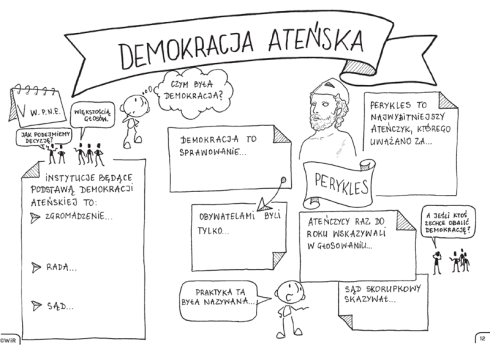 DEMOKRACJA ATEŃSKA
V W. P.N.E.
JAK PODEJMIEMY
DECYZJĘ?
WIĘKSZOŚCIĄ
GŁOSÓW.
CZYM BYŁA
DEMOKRACJA?
INSTYTUCJE BĘDĄCE
PODSTAWĄ DEMOKRACJI
ATEŃSKIEJ TO:
ZGROMADZENIE...
RADA...
SĄD...
DEMOKRACJA TO
SPRAWOWANIE...
OBYWATELAMI BYLI
TYLKO...
PRAKTYKA TA
BYŁA NAZYWANA...
PERYKLES
PERYKLES TO
NAJWYBITNIEJSZY
ATEŃCZYK, KTÓREGO
UWAŻANO ZA...
ATEŃCZYCY RAZ DO
ROKU WSKAZYWALI
W GŁOSOWANIU...
A JEŚLI KTOŚ
ZECHCE OBALIĆ
DEMOKRACJĘ?
SĄD SKORUPKOWY
SKAZYWAŁ...
12